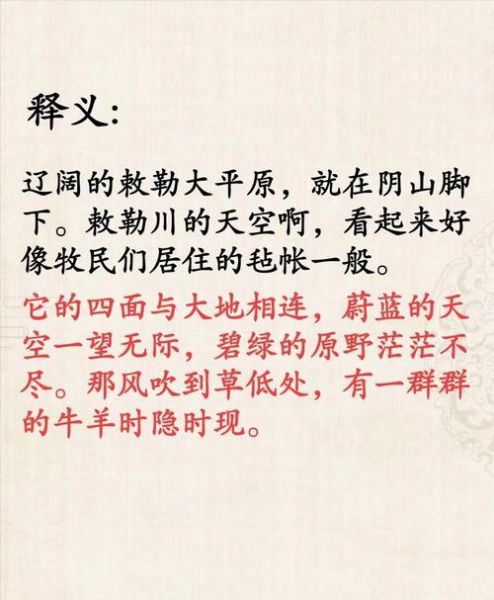 释义:
辽阔的敕勒大平原，就在阴山脚
下。敕勒川的天空啊，看起来好
像牧民们居住的毡帐一般。
它的四面与大地相连，蔚蓝的天
空一望无际，碧绿的原野茫茫不
尽。那风吹到草低处，有一群群
的牛羊时隐时现。